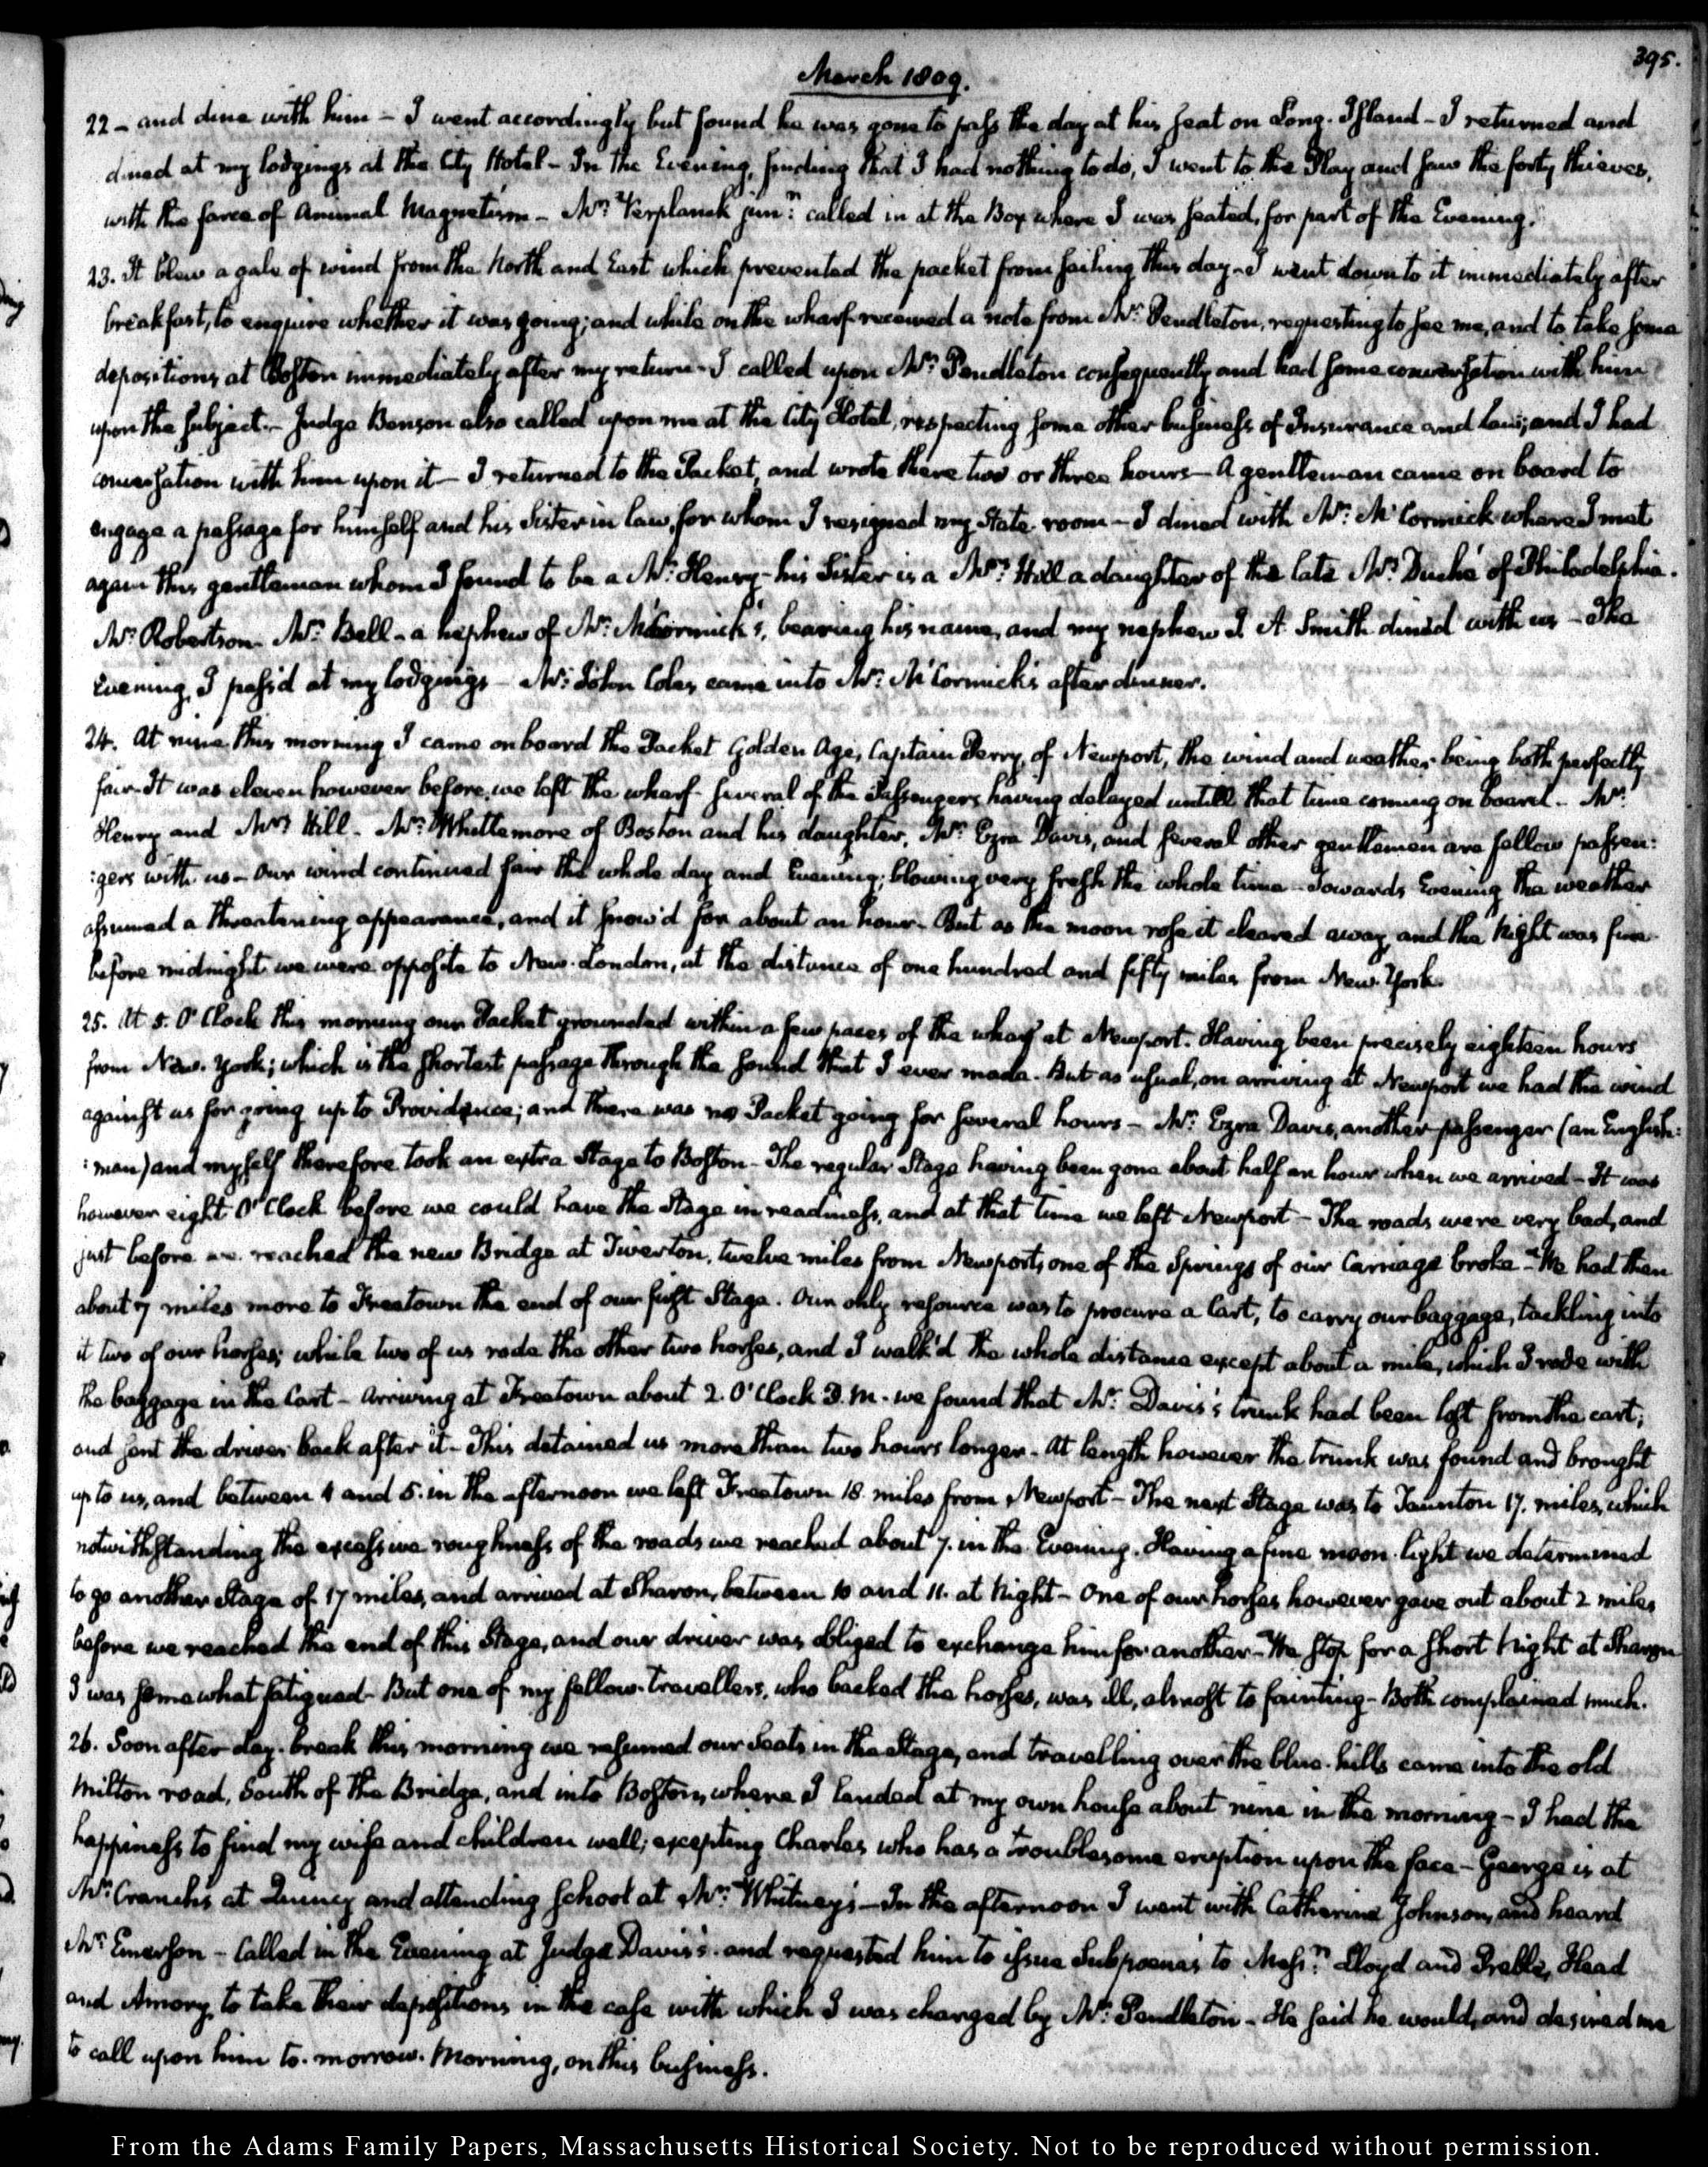 395.
March 1809.
22 – and dine with him – I went accordingly but found he was gone to pass the day at his seat on Long-Island – I returned and
dined at my lodgings at the City Hotel – In the Evening, finding that I had nothing to do, I went to the Play and saw the forty thieves,
with the farce of Animal Magnetism – Mr: Verplanck junr: called in at the Box where I was seated, for part of the Evening.
23. It blew a gale of wind from the North and East which prevented the packet from sailing this day – I went down to it immediately after
breakfast, to enquire whether it was going; and while on the wharf received a note from Mr: Pendleton, requesting to see me, and to take some
depositions at Boston immediately after my return – I called upon Mr: Pendleton consequently and had some conversation with him
upon the subject. – Judge Benson also called upon me at the City Hotel, respecting some other business of Insurance and law; and I had
conversation with him upon it – I returned to the Packet, and wrote there two or three hours – A gentleman came on board to
engage a passage for himself and his Sister in law, for whom I resigned my State-room – I dined with Mr: McCormick where I met
again this gentleman whom I found to be a Mr: Henry – his Sister is a Mrs: Hill a daughter of the late Mr: Duché of Philadelphia.
Mr: Robertson – Mr: Bell – a nephew of Mr: McCormick's, bearing his name, and my nephew J. A. Smith dined with us – The
Evening I pass'd at my lodgings – Mr: John Coles came into Mr: McCormick's after dinner.
24. At nine this morning I came on board the Packet Golden Age, Captain Perry, of Newport, the wind and weather being both perfectly
fair – It was eleven however before we left the wharf – several of the Passengers having delayed untill that time coming on board – Mr:
Henry and Mrs: Hill – Mr: Whittemore of Boston and his daughter, Mr: Ezra Davis, and several other gentlemen are fellow passen:
:gers with us – Our wind continued fair the whole day and Evening; blowing very fresh the whole time – Towards Evening the weather
assumed a threatening appearance, and it snow'd for about an hour – But as the moon rose it cleared away, and the Night was fine –
before midnight we were opposite to New-London, at the distance of one hundred and fifty miles from New-York.
25. At 5. O'Clock this morning our Packet grounded within a few paces of the wharf at Newport. Having been precisely eighteen hours
from New-York; which is the shortest passage through the sound that I ever made. But as usual, on arriving at Newport we had the wind
against us for going up to Providence; and there was no Packet going for several hours – Mr: Ezra Davis, another passenger (an English:
:man) and myself therefore took an extra Stage to Boston – The regular Stage having been gone about half an hour when we arrived – It was
however eight O'Clock before we could have the Stage in readiness, and at that time we left Newport – The roads were very bad, and
just before we reached the new Bridge at Tiverton, twelve miles from Newport, one of the Springs of our Carriage broke – We had then
about 7 miles more to Freetown the end of our first Stage. Our only resource was to procure a Cart, to carry our baggage, tackling into
it two of our horses; while two of us rode the other two horses, and I walk'd the whole distance except about a mile, which I rode with
the baggage in the Cart – Arriving at Freetown about 2. O'Clock P.M. we found that Mr: Davis's trunk had been lost from the cart;
and sent the driver back after it – This detained us more than two hours longer – At length however the trunk was found and brought
up to us, and between 4 and 5. in the afternoon we left Freetown 18. miles from Newport – The next Stage was to Taunton 17. miles, which
notwithstanding the excessive roughness of the roads we reached about 7. in the Evening. Having a fine moon-light we determined
to go another Stage of 17 miles, and arrived at Sharon, between 10 and 11. at Night – One of our horses however gave out about 2 miles
before we reached the end of this Stage, and our driver was obliged to exchange him for another – We stop for a short Night at Sharon
I was somewhat fatigued – But one of my fellow-travellers, who backed the horses, was ill, almost to fainting – Both complained much.
26. Soon after day-break this morning we resumed our Seats in the Stage, and travelling over the blue-hills came into the old
Milton road, South of the Bridge, and into Boston, where I landed at my own house about nine in the morning – I had the
happiness to find my wife and children well; excepting Charles who has a troublesome eruption upon the face – George is at
Mr: Cranch's at Quincy and attending School at Mr: Whitney's – In the afternoon I went with Catherine Johnson, and heard
Mr: Emerson – Called in the Evening at Judge Davis's and requested him to issue Subpoena's to Messrs: Lloyd and Preble, Head
and Amory, to take their depositions in the case with which I was charged by Mr: Pendleton – He said he would, and desired me
to call upon him to-morrow-Morning, on this business.
From the Adams Family Papers, Massachusetts Historical Society. Not to be reproduced without permission.